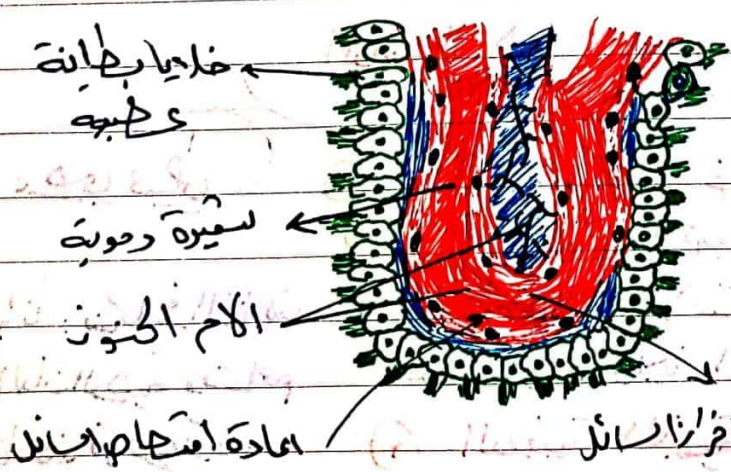 خلايا بطانة
عظمية
شعيرة دموية
الام الحنون
اعادة امتصاص السائل
فراز السائل